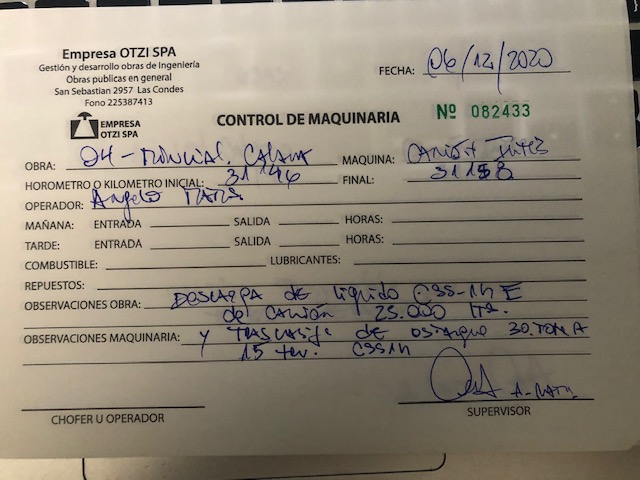 Empresa OTZI SPA
Gestión y desarrollo obras de Ingeniería
Obras publicas en general
San Sebastian 2957 Las Condes
Fono 225387413
FECHA: 06/12/2020
EMPRESA
OTZI SPA
CONTROL DE MAQUINARIA
Nº 082433
OBRA: DH - CALAMA MAQUINA:
HOROMETRO O KILOMETRO INICIAL: 31146 FINAL: 31158
OPERADOR: Angelo
MAÑANA: ENTRADA SALIDA HORAS:
TARDE: ENTRADA SALIDA HORAS:
COMBUSTIBLE: LUBRICANTES:
REPUESTOS:
OBSERVACIONES OBRA: Descarga de liquido CSS-1H E
de camión 25.000
OBSERVACIONES MAQUINARIA: y de 30. TON A
15 CSS1H
CHOFER U OPERADOR
SUPERVISOR